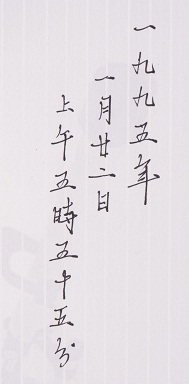 一九九五年
一月廿二日
上午五時五十五分